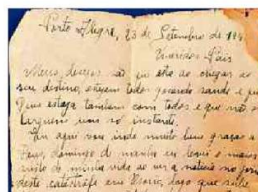 Porto Alegre, 23 de Setembro de 19
Queridos Pais
Meus desejos são que esta ao chegar ao
seu destino, estejam todos gozando saúde e que
Deus esteja também com todos e que não os
larguem um só instante.
Por aqui vai indo muito bem graças a
Deus, domingo de manhã eu levei o maior
susto de minha vida ao ver a notícia no jornal
desta catástrofe em Osório, logo que